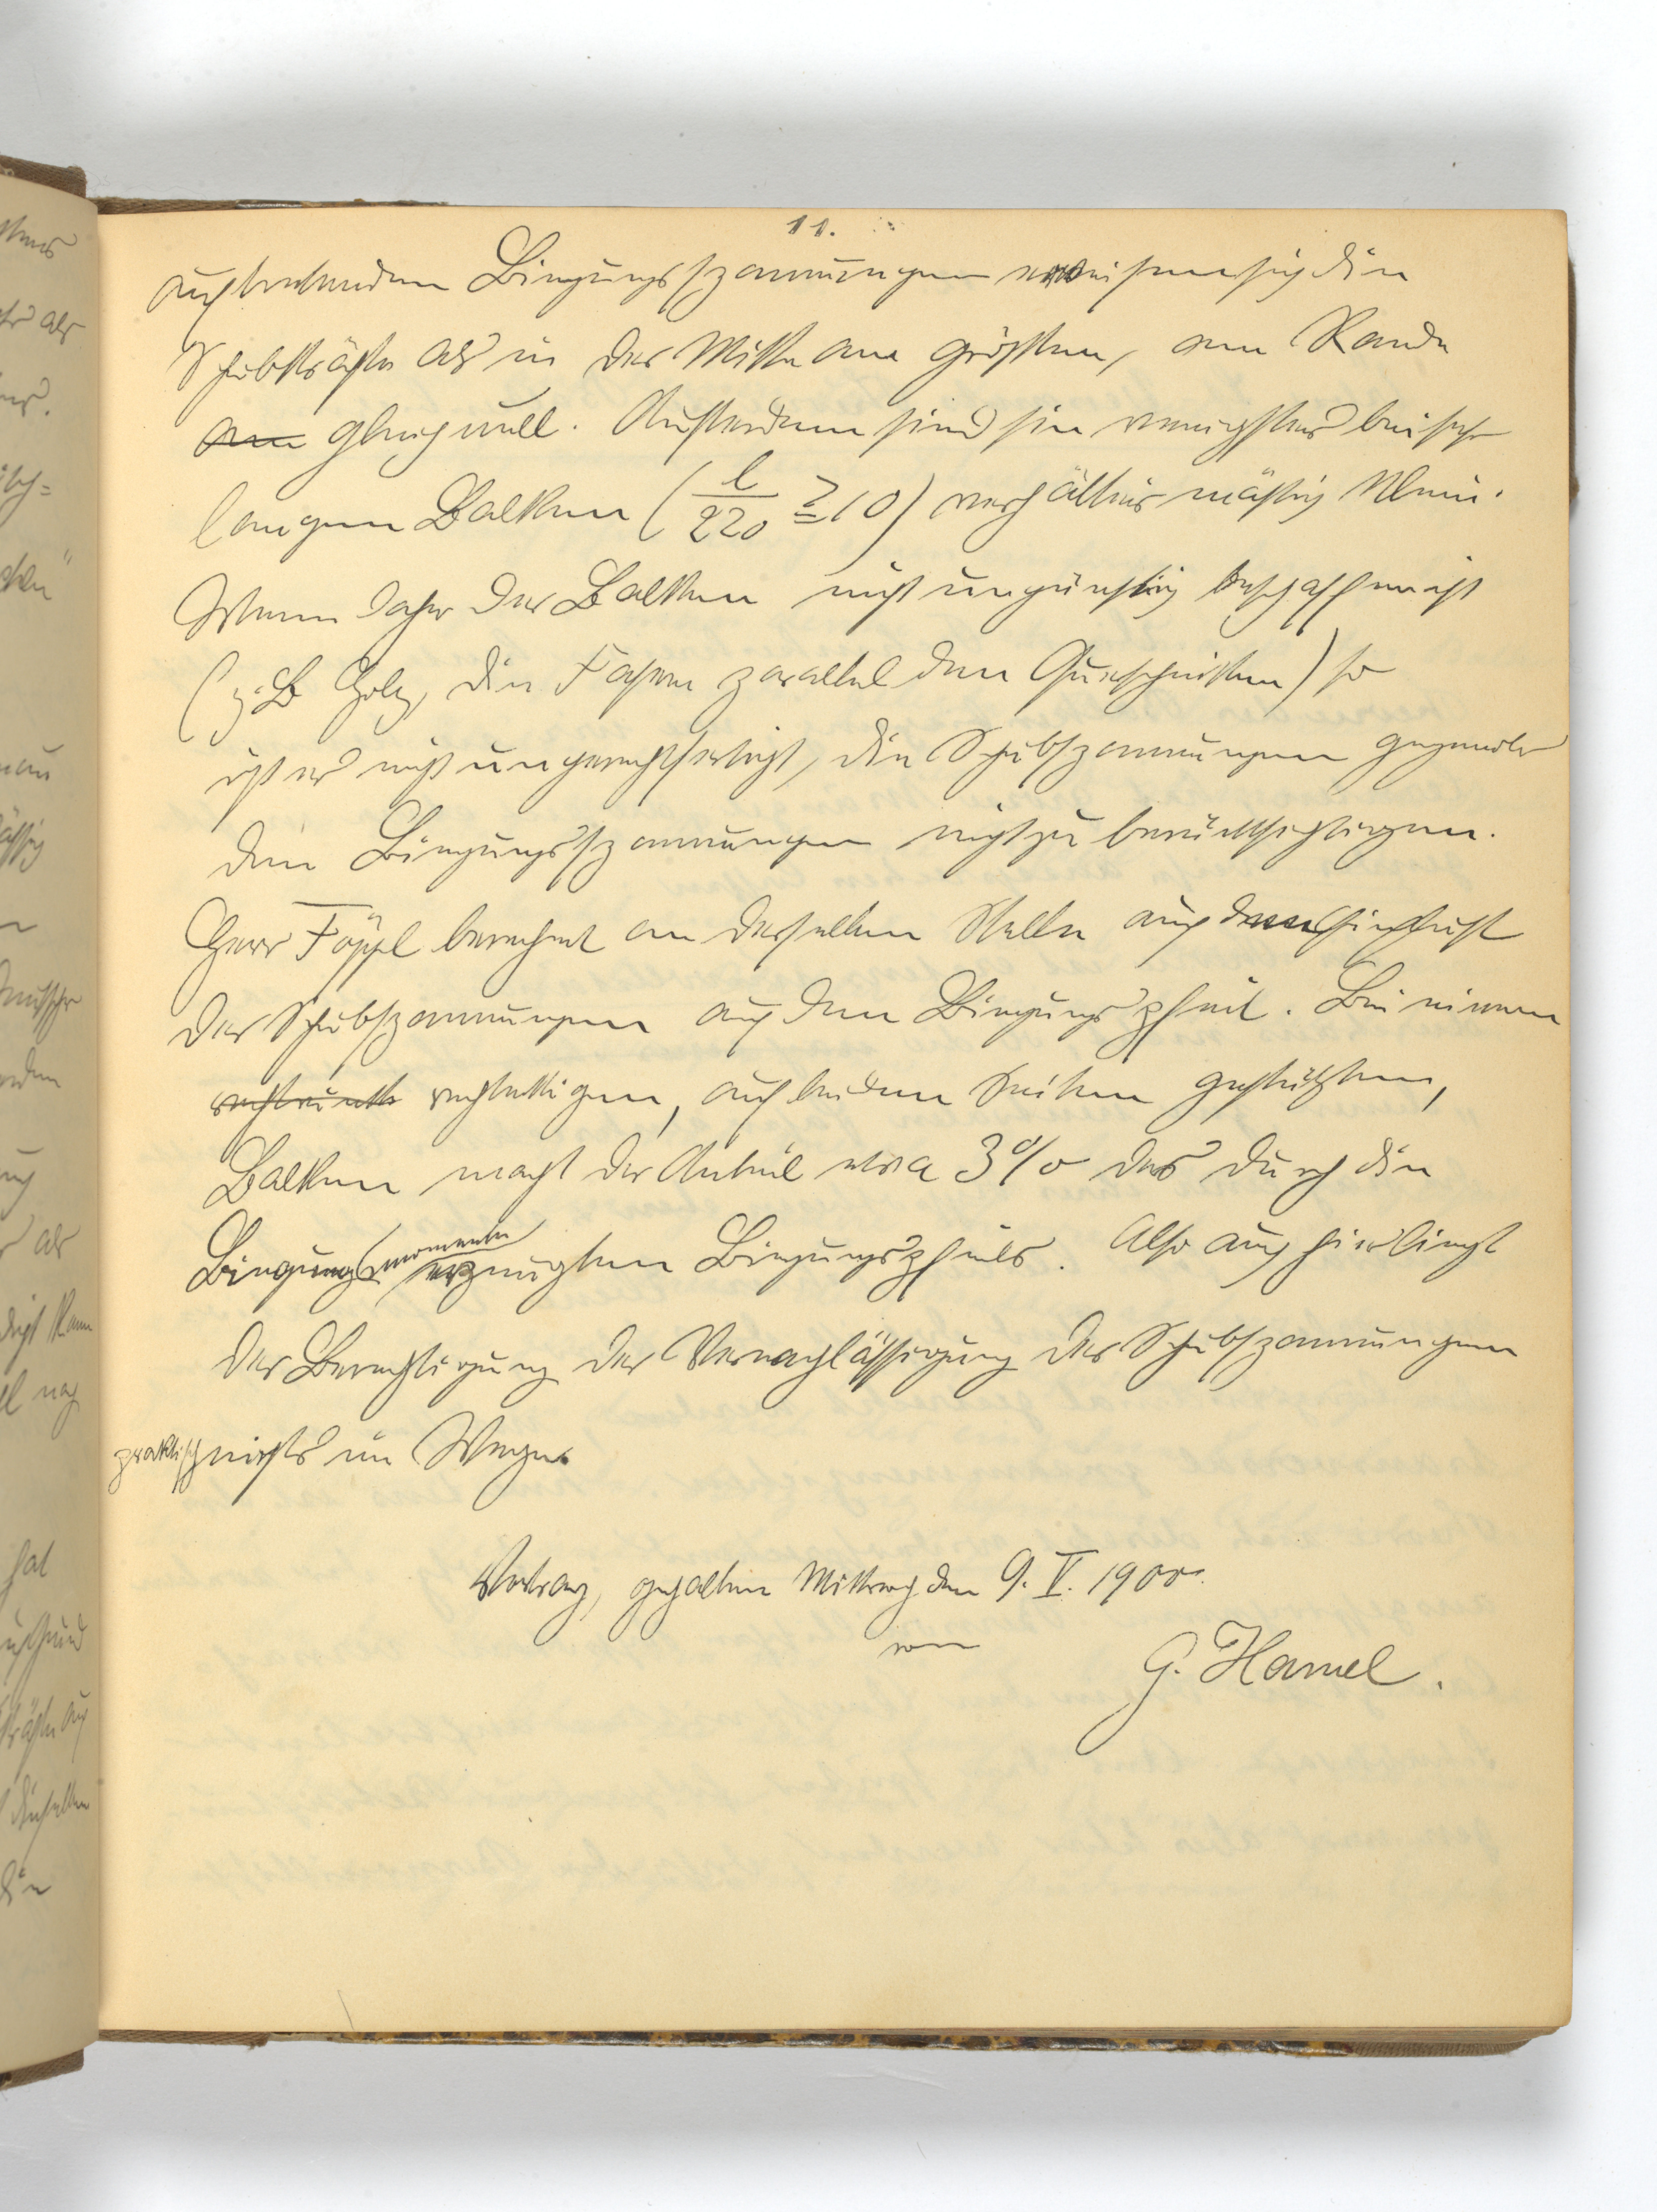 11.
auftretenden Biegungsspannungen erweisen sich die
Schubkräfte als in der Mitte am grössten, am Rande
am gleich null. Ausserdem sind sie wenigstens bei sehr
langen Balken (l/220 ≧ 10) verhältnismässig klein.
Wenn daher der Balken nicht ungünstig beschaffen ist
(z. B Holz, die Fasern parallel den Querschnitten) so
ist es nicht ungerechtfertigt, die Schubspannungen gegenüber
den Biegungsspannungen nicht zu berücksichtigen.
Herr Föppl berechnet an derselben Stelle auch den Einfluss
der Schubspannungen auf den Biegungspfeil. Bei einem
rechteckigen, auf beiden Seiten gestützten,
Balken macht der Anteil etwa 3% des durch die
Biegungsmomente erzeugten Biegungspfeils. Also auch hier liegt
der Berechtigung der Vernachlässigung der Schubspannungen
praktisch nichts im Wege.
Vortrag, gehalten Mittwoch den 9. V. 1900.
von
G. Hamel.